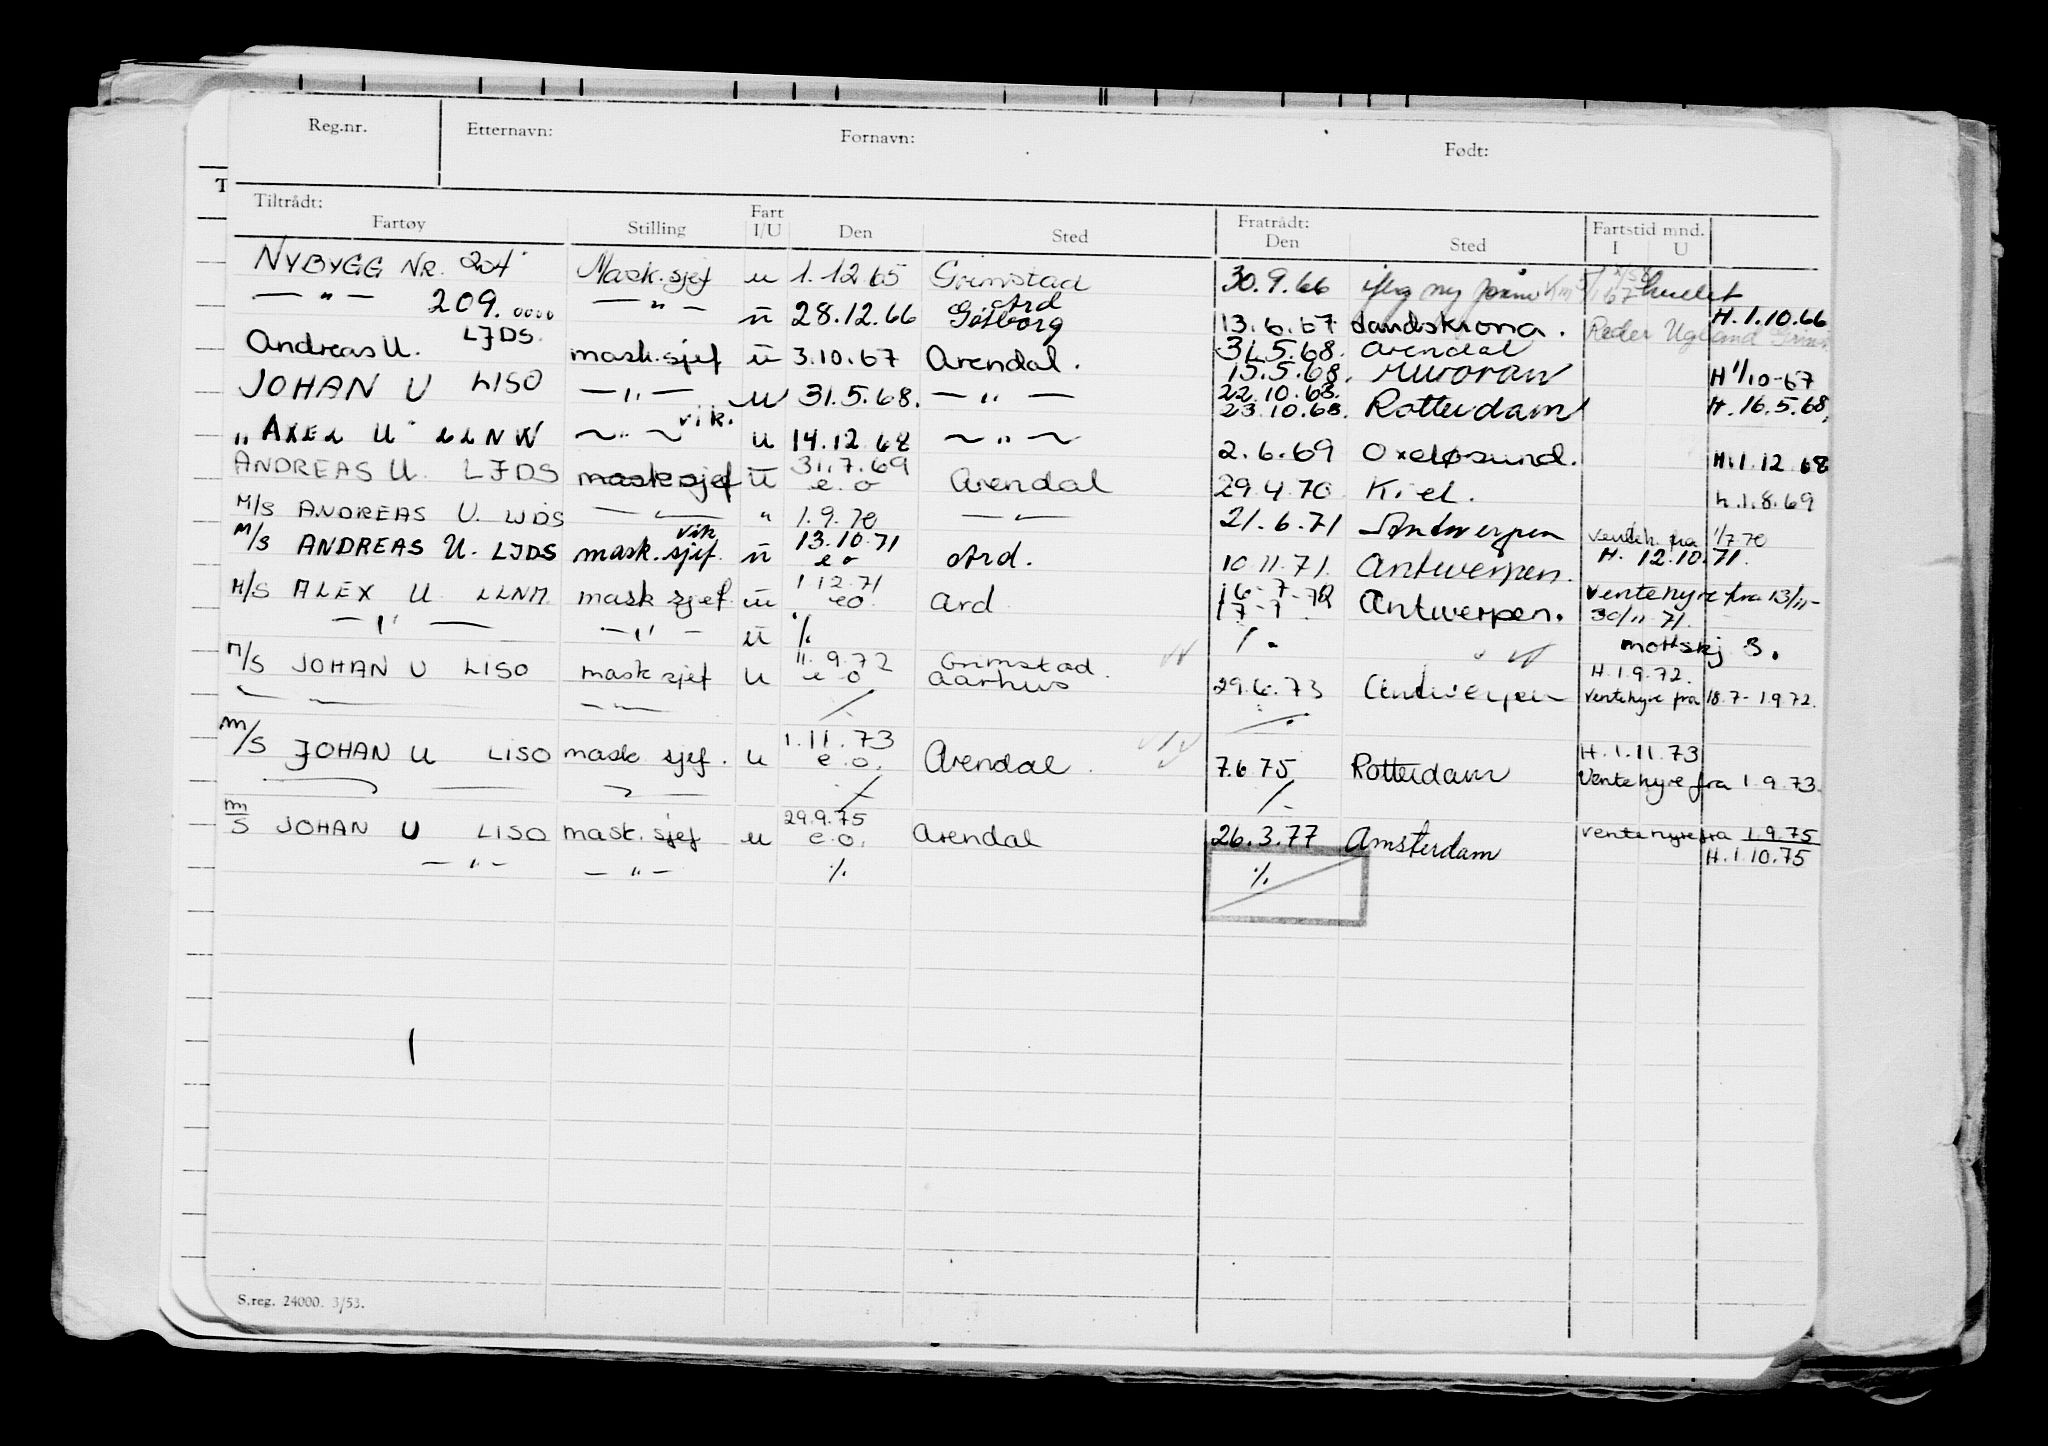 Reg.nr. Etternavn: Fornavn: Født:
T
Tiltrådt: Fratrådt:
Fartøy Stilling Fart I/U Den Sted Den Sted Fartstid mnd. I U
NYBYGG NR. 204 Mask.sjef u 1.12.65 Grimstad 30.9.66 iflg ny hullet
— " — 209.0000 — " — u 28.12.66 Ard Gøtborg 13.6.67 Landskrona. Reder Ugland H.1.10.66
Andreas U. LJDS. mask.sjef u 3.10.67 Arendal. 31.5.68. Arendal
15.5.68. Muroran H 1/10-67
JOHAN U LISO — " — u 31.5.68. — " — 22.10.68.
23.10.68. Rotterdam H. 16.5.68,
"AXEL U" LLNW — " — vik. u 14.12.68 — " — 2.6.69 Oxeløsund. H.1.12.68
ANDREAS U. LJDS mask.sjef u 31.7.69 e.o Arendal 29.4.70 Kiel. h.1.8.69
M/S ANDREAS U. LJDS — " — " 1.9.70 — " — 21.6.71 Antwerpen venteh. fra 1/7.70
M/S ANDREAS U. LJDS mask.sjef. vik u 13.10.71 e o Ard. 10.11.71. Antwerpen. H. 12.10.71.
M/S ALEX U LLNM. mask sjef. u 1.12.71 eo. Ard 16-7-72 17-7- Antwerpen. Ventehyre fra 13/11-30/11 71.
— " — — " — u %. %. mottskj 3.
M/S JOHAN U LISO mask sjef u 11.9.72 e o Grimstad. Aarhus 29.6.73 Antwerpen H.1.9.72. Ventehyre fra 18.7-1.9.72.
— " — — " — %. %.
M/S JOHAN U LISO mask sjef. u 1.11.73 e.o. Arendal. 7.6.75 Rotterdam H.1.11.73 Ventehyre fra 1.9.73.
— " — — " — %. %.
M/S JOHAN U LISO mask.sjef u 29.9.75 e.o. Arendal 26.3.77 Amsterdam Ventehyre fra 1.9.75 H.1.10.75
— " — — " — %. %.
S.reg. 24000. 3/53.